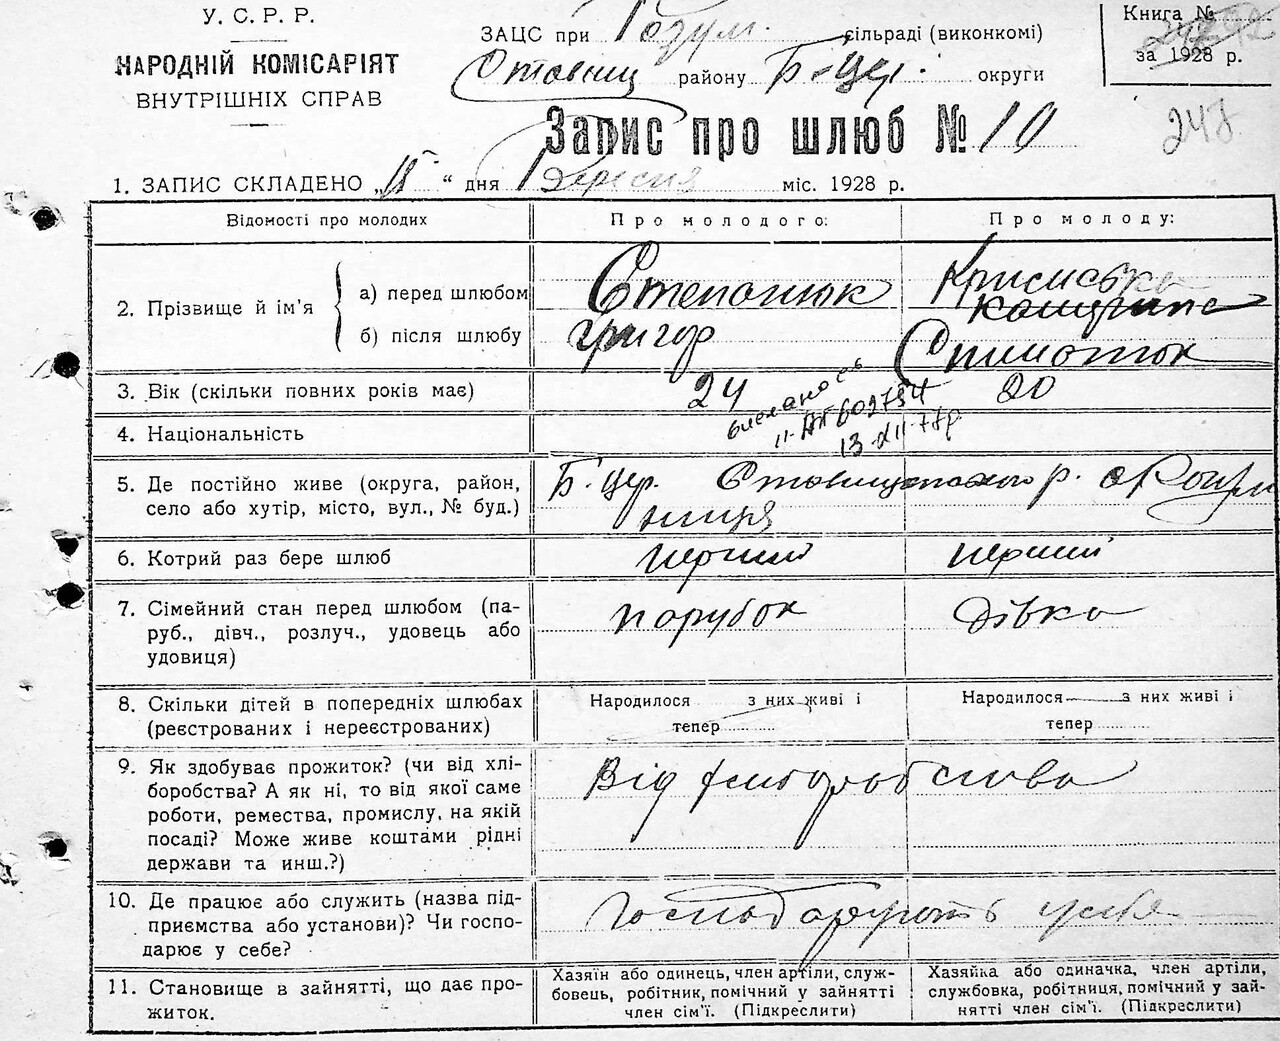 У. С. Р. Р.
НАРОДНІЙ КОМІСАРІЯТ
ВНУТРІШНІХ СПРАВ
ЗАЦС при Розум. сільраді (виконкомі)
Ставищ району Б-Цер. округи
Книга №
за 1928 р.
248
Запис про шлюб № 10
1. ЗАПИС СКЛАДЕНО „ “ дня Вересня міс. 1928 р.
Відомості про молодих
Про молодого:
Про молоду:
2. Прізвище й ім'я
а) перед шлюбом
б) після шлюбу
Степанюк
Григор
Степанюк
3. Вік (скільки повних років має)
24
20
II-АП 602754
13-XII-77р.
4. Національність
5. Де постійно живе (округа, район,
село або хутір, місто, вул., № буд.)
Б. Цер. Ставищанського р. с Розум
ниця
6. Котрий раз бере шлюб
перший
перший
7. Сімейний стан перед шлюбом (па-
руб., дівч., розлуч., удовець або
удовиця)
парубок
дівка
8. Скільки дітей в попередніх шлюбах
(реєстрованих і нереєстрованих)
Народилося з них живі і
тепер
Народилося з них живі і
тепер
9. Як здобуває прожиток? (чи від хлі-
боробства? А як ні, то від якої саме
роботи, ремества, промислу, на якій
посаді? Може живе коштами рідні
держави та инш.?)
Від хліборобства
10. Де працює або служить (назва під-
приємства або установи)? Чи госпо-
дарює у себе?
Господарюють у себе
11. Становище в зайнятті, що дає про-
житок.
Хазяїн або одинець, член артіли, служ-
бовець, робітник, помічний у зайнятті
член сім'ї. (Підкреслити)
Хазяйка або одиначка, член артіли,
службовка, робітниця, помічний у зай-
нятті член сім'ї. (Підкреслити)